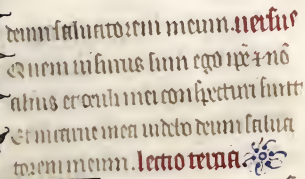 deum saluatorem meum. uersus
Quem uisurus sum ego ip̄e ⁊ nō
alius et oculi mei conspecturi sunt
Et in carne mea uidebo deum salua
torem meum. lectio tertia